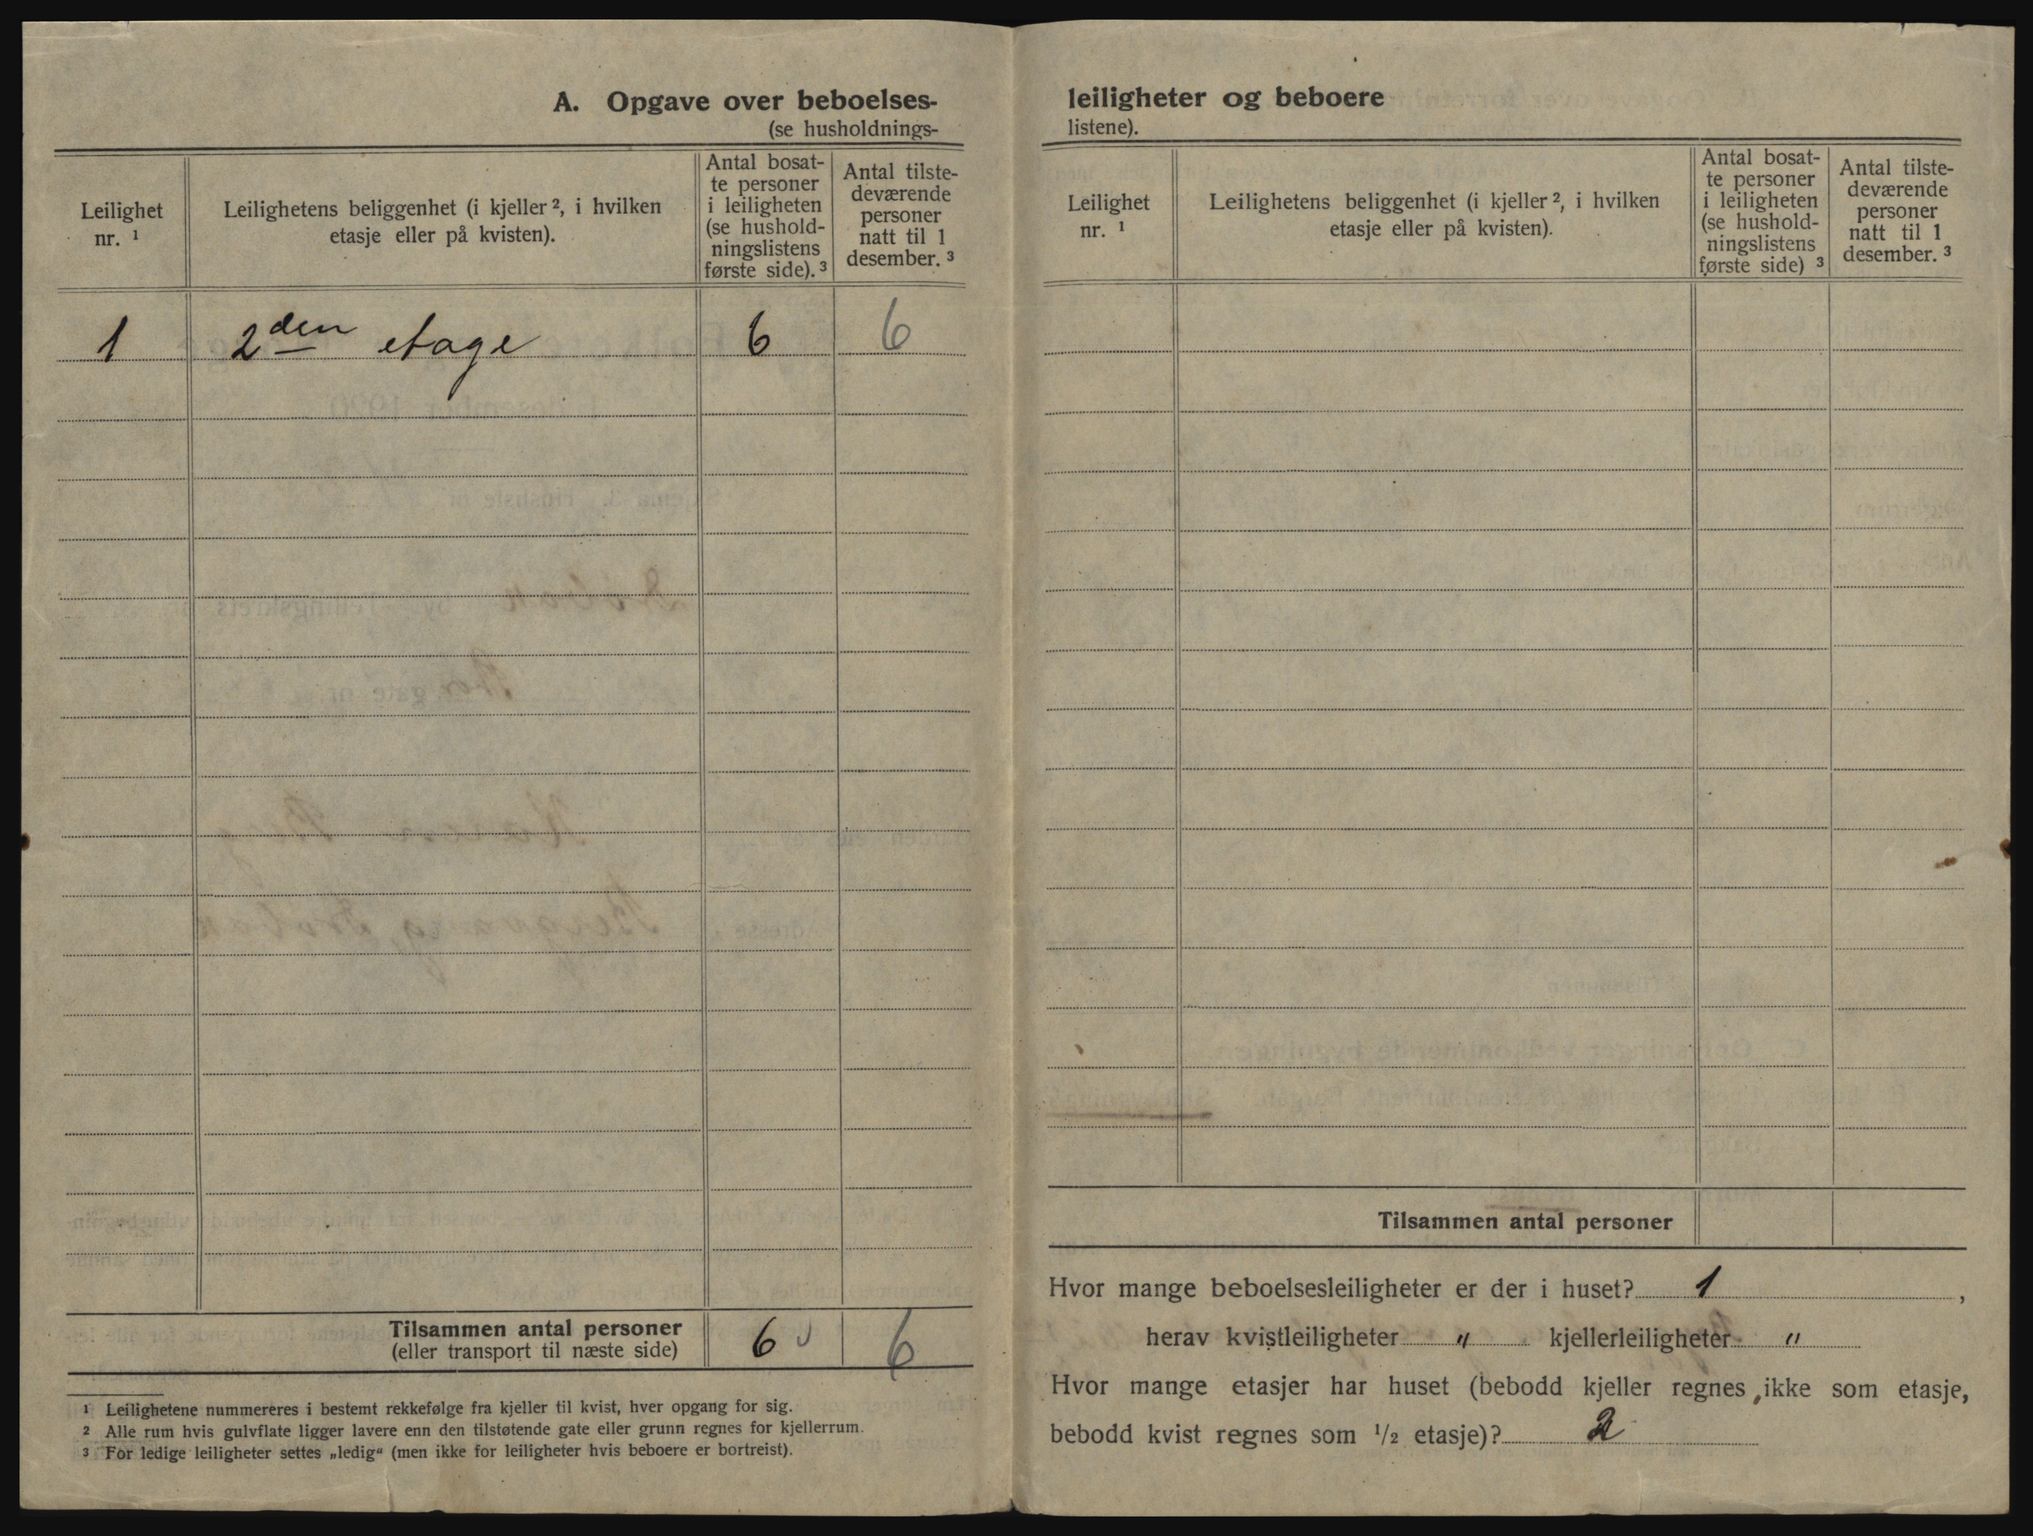 A. Opgave over beboelses-
(se husholdnings-
Leilighet
nr. ¹
Leilighetens beliggenhet (i kjeller ², i hvilken
etasje eller på kvisten).
Antal bosat-
te personer
i leiligheten
(se hushold-
ningslistens
første side). ³
Antal tilste-
deværende
personer
natt til 1
desember. ³
1 2den etage 6 6
Tilsammen antal personer
(eller transport til næste side)
6 6
¹ Leilighetene nummereres i bestemt rekkefølge fra kjeller til kvist, hver opgang for sig.
² Alle rum hvis gulvflate ligger lavere enn den tilstøtende gate eller grunn regnes for kjellerrum.
³ For ledige leiligheter settes „ledig“ (men ikke for leiligheter hvis beboere er bortreist).
leiligheter og beboere
listene).
Leilighet
nr. ¹
Leilighetens beliggenhet (i kjeller ², i hvilken
etasje eller på kvisten).
Antal bosat-
te personer
i leiligheten
(se hushold-
ningslistens
første side) ³
Antal tilste-
deværende
personer
natt til 1
desember. ³
Tilsammen antal personer
Hvor mange beboelsesleiligheter er der i huset? 1 ,
herav kvistleiligheter " kjellerleiligheter "
Hvor mange etasjer har huset (bebodd kjeller regnes ikke som etasje,
bebodd kvist regnes som ½ etasje)? 2